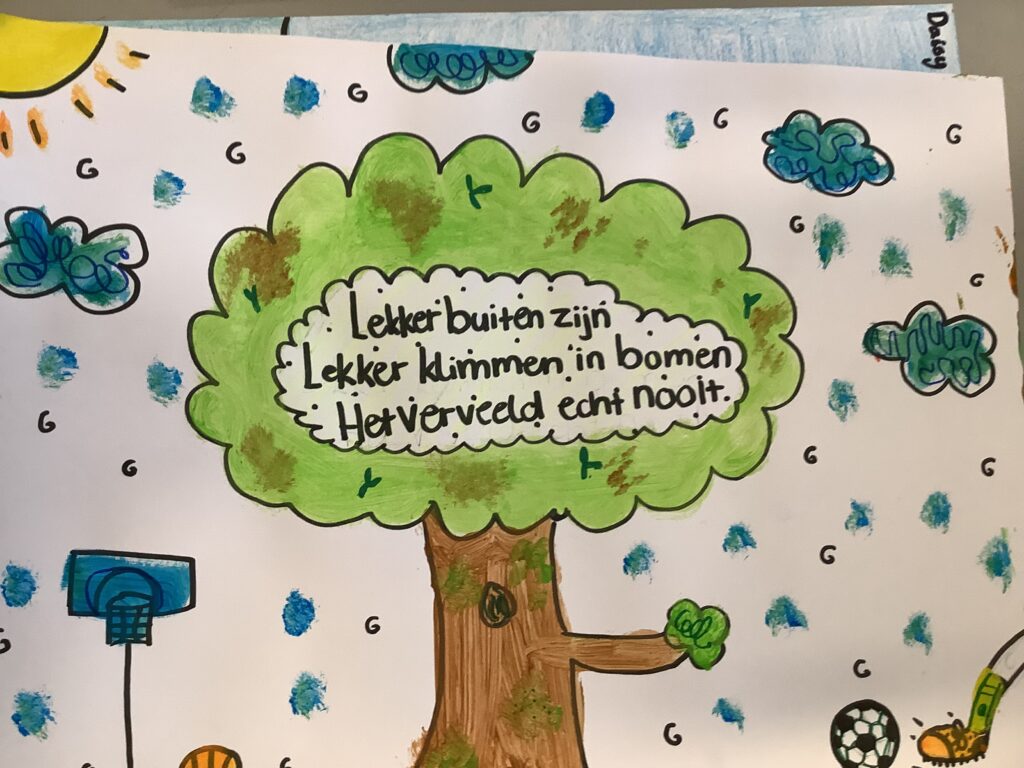 Daisy
Lekker buiten zijn
Lekker klimmen in bomen
Het verveeld echt nooit.